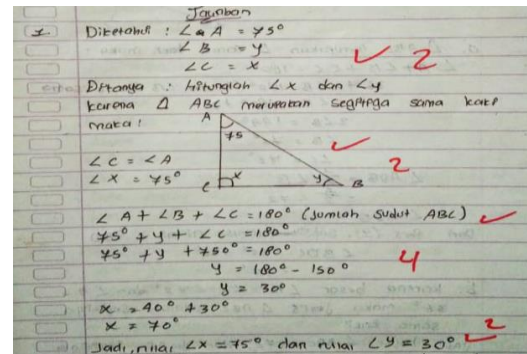 Jawaban
1. Diketahui : ∠ A = 75°
∠ B = y
∠ C = x
2
Ditanya : Hitunglah ∠x dan ∠y
karena Δ ABC merupakan segitiga sama kaki
maka :
A
75
∠ C = ∠ A
2
∠ x = 75°
C x y B
∠ A + ∠ B + ∠ C = 180° (Jumlah sudut ABC)
75° + y + ∠ C = 180°
75° + y + 750° = 180°
4
y = 180° - 150°
y = 30°
x = 40° + 30°
x = 70°
2
Jadi, nilai ∠x = 75° dan nilai ∠y = 30°